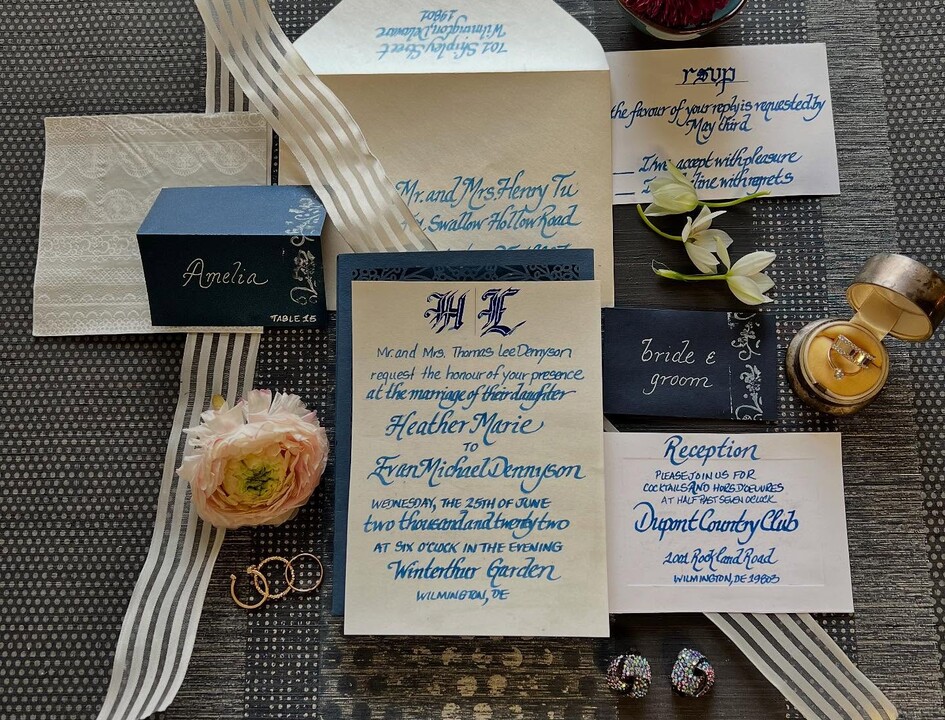 701 Shipley Street
Wilmington, Delaware
19801
rsvp
the favour of your reply is requested by
May third
accept with pleasure
line with regrets
Mr. and Mrs. Henry Tu
Swallow Hollow Road
Amelia
TABLE 15
H E
Mr. and Mrs. Thomas Lee Dennyson
request the honour of your presence
at the marriage of their daughter
Heather Marie
TO
Evan Michael Dennyson
WEDNESDAY, THE 25TH OF JUNE
two thousand and twenty two
AT SIX O'CLOCK IN THE EVENING
Winterthur Garden
WILMINGTON, DE
bride &
groom
Reception
PLEASE JOIN US FOR
COCKTAILS AND HORS D'OEUVRES
AT HALF PAST SEVEN O'CLOCK
Dupont Country Club
1001 Rockland Road
WILMINGTON, DE 19803